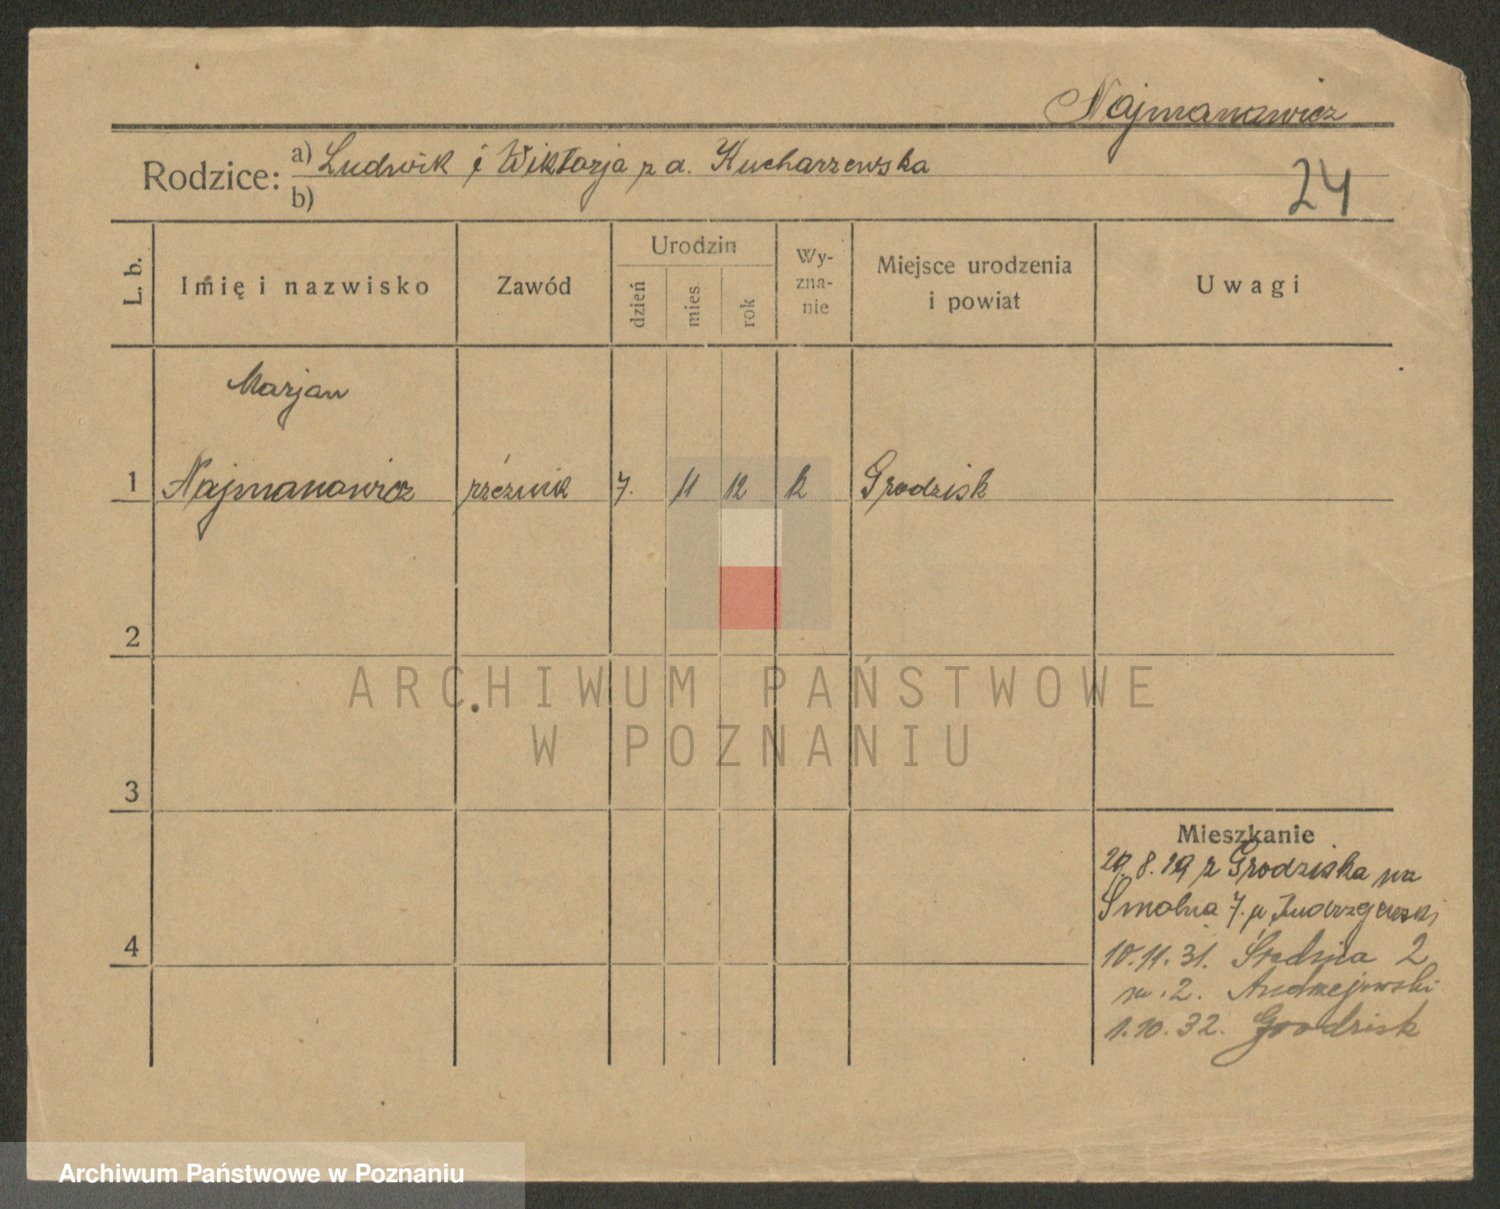 Najmanowicz
Rodzice: a) Ludwik i Wiktorja z d. Kucharzewska
b)
24
L. b.
Imię i nazwisko
Zawód
Urodzin
dzień
mies
rok
Wy-
zna-
nie
Miejsce urodzenia
i powiat
Uwagi
Marjan
1 Najmanowicz rzeźnik 7. 11 12 k Grodzisk
2
ARCHIWUM PAŃSTWOWE
W POZNANIU
3
Mieszkanie
8.29 z Grodziska na
Smolna 7. p
4
10.11.31. Średnia 2
m. 2. Andrzejewski
1.10.32. Grodzisk
Archiwum Państwowe w Poznaniu